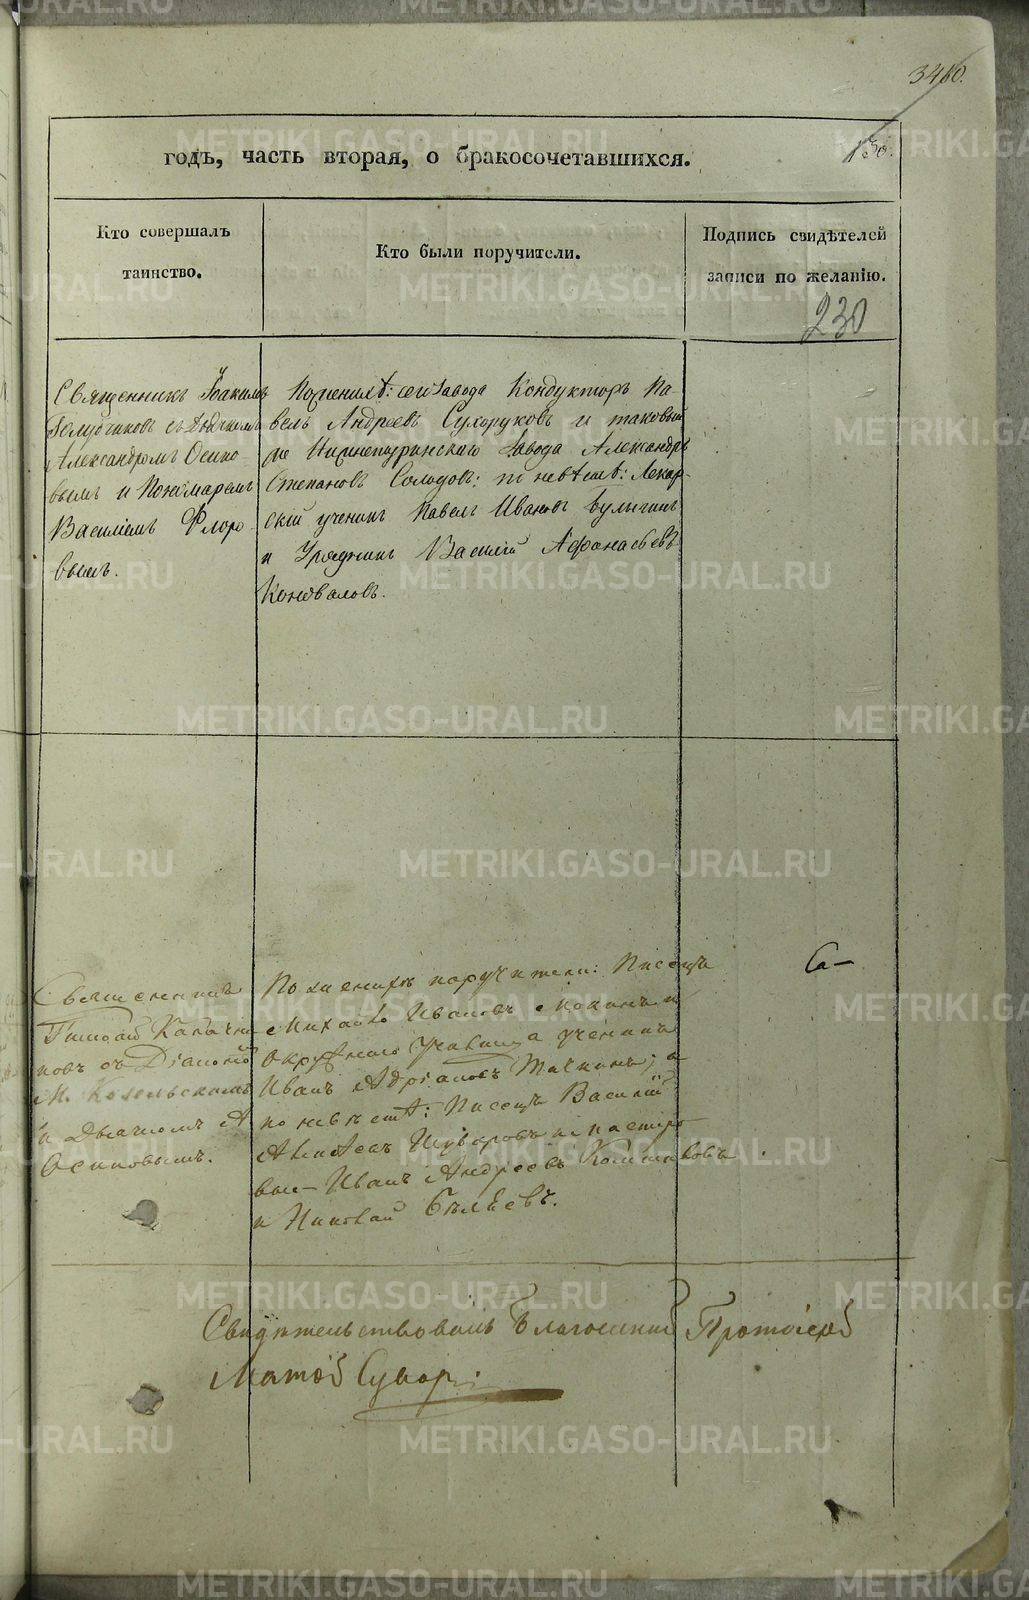 3460.
130.
годъ, часть вторая, о бракосочетавшихся.
Кто совершалъ
таинство.
Кто были поручители.
Подпись свидѣтелей
записи по желанію.
230
Священникъ Іоакимъ
Голубчиковъ съ Дьячкомъ
Александромъ Осипо-
вымъ и Пономаремъ
Василіемъ Флоро-
вымъ.
По жениху: сего завода Кондукторъ Па-
велъ Андреевъ Сухоруковъ и таковый
же Нижнетуринскаго завода Александръ
Степановъ Солодовъ; по невѣстѣ: Лекар-
скій ученикъ Павелъ Ивановъ Булыгинъ
и Урядникъ Василій Афонасьевъ
Коноваловъ.
Священникъ
съ Діакономъ
и Дьячкомъ А
Осиповымъ.
По женихѣ поручители: Писецъ
Михайло Ивановъ
Окружнаго Училища ученикъ
Иванъ Адріановъ
по невѣстѣ: Писецъ Василій
Иванъ Андреевъ
и Николай Бѣляевъ.
Свидѣтельствовалъ Благочинный Протоіерей
METRIKI.GASO-URAL.RU